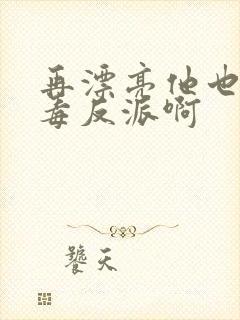 再漂亮他也
毒反派啊
饕天